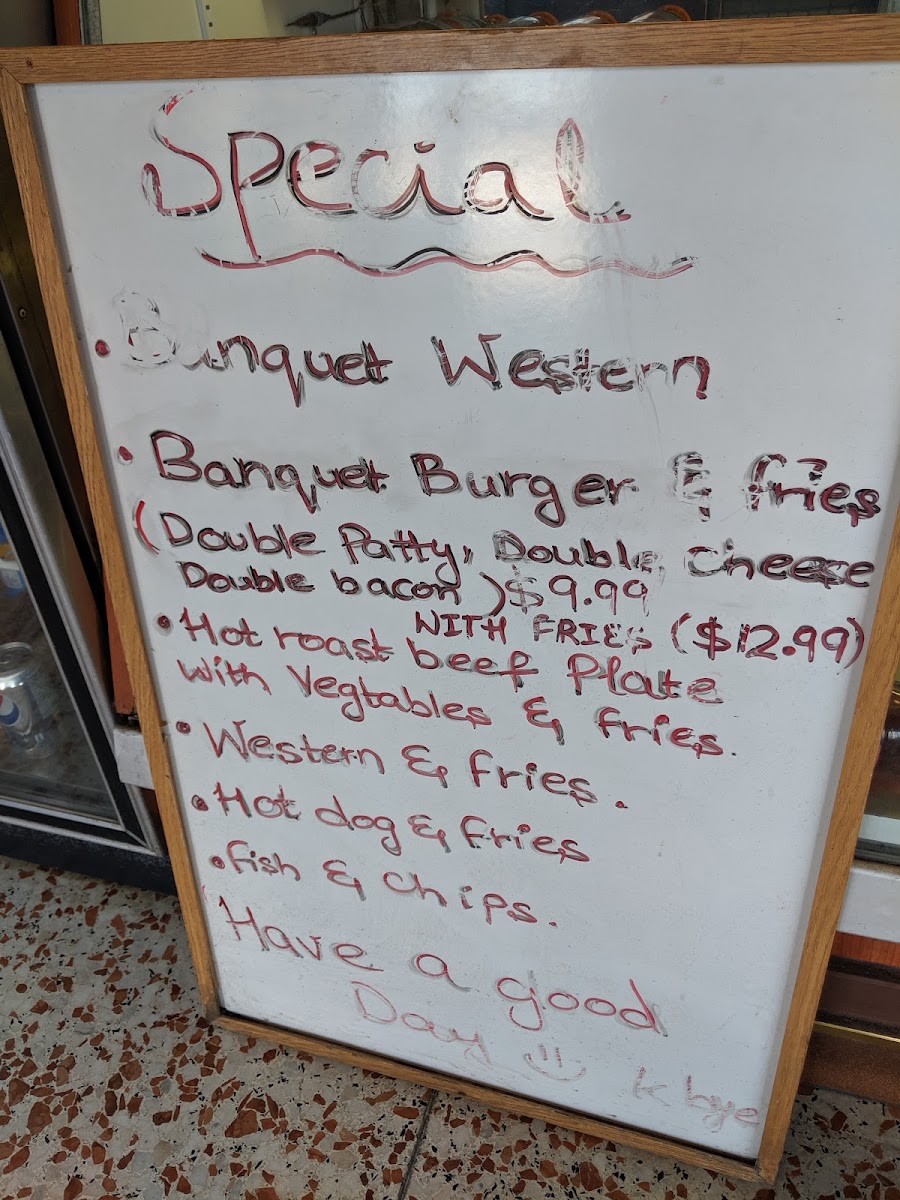 Special
• Banquet Western
• Banquet Burger & fries
(Double Patty, Double cheese
Double bacon) $9.99
WITH FRIES ($12.99)
• Hot roast beef Plate
with Vegtables & fries.
• Western & fries.
• Hot dog & fries
• fish & chips.
Have a good
Day
k bye